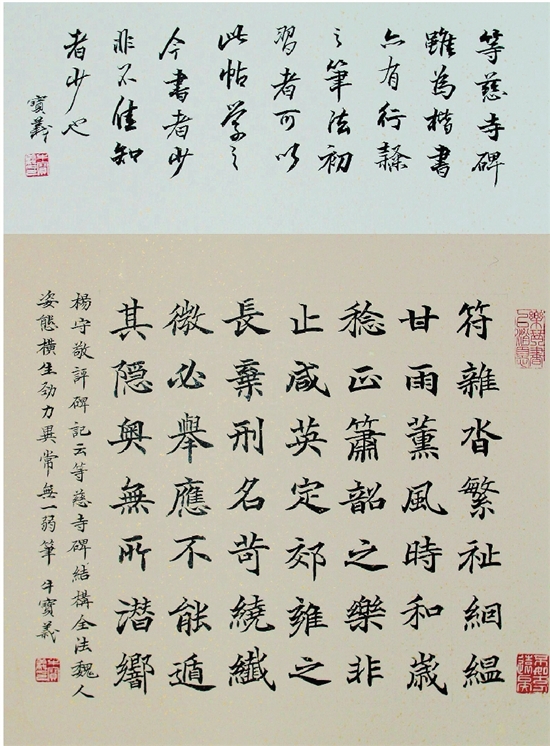 等慈寺碑
雖為楷書
亦有行隸
之筆法初
習者可以
此帖学之
今書者少
非不佳知
者少也
寶義
符雜沓繁祉絪縕
甘雨薰風時和歲
稔正簫韶之樂非
止咸英定郊雍之
長棄刑名苛繞纖
微必舉應不能遁
其隱奧無所潜響
楊守敬評碑記云等慈寺碑結構全法魏人
姿態橫生勁力異常無一弱筆 牛寶義